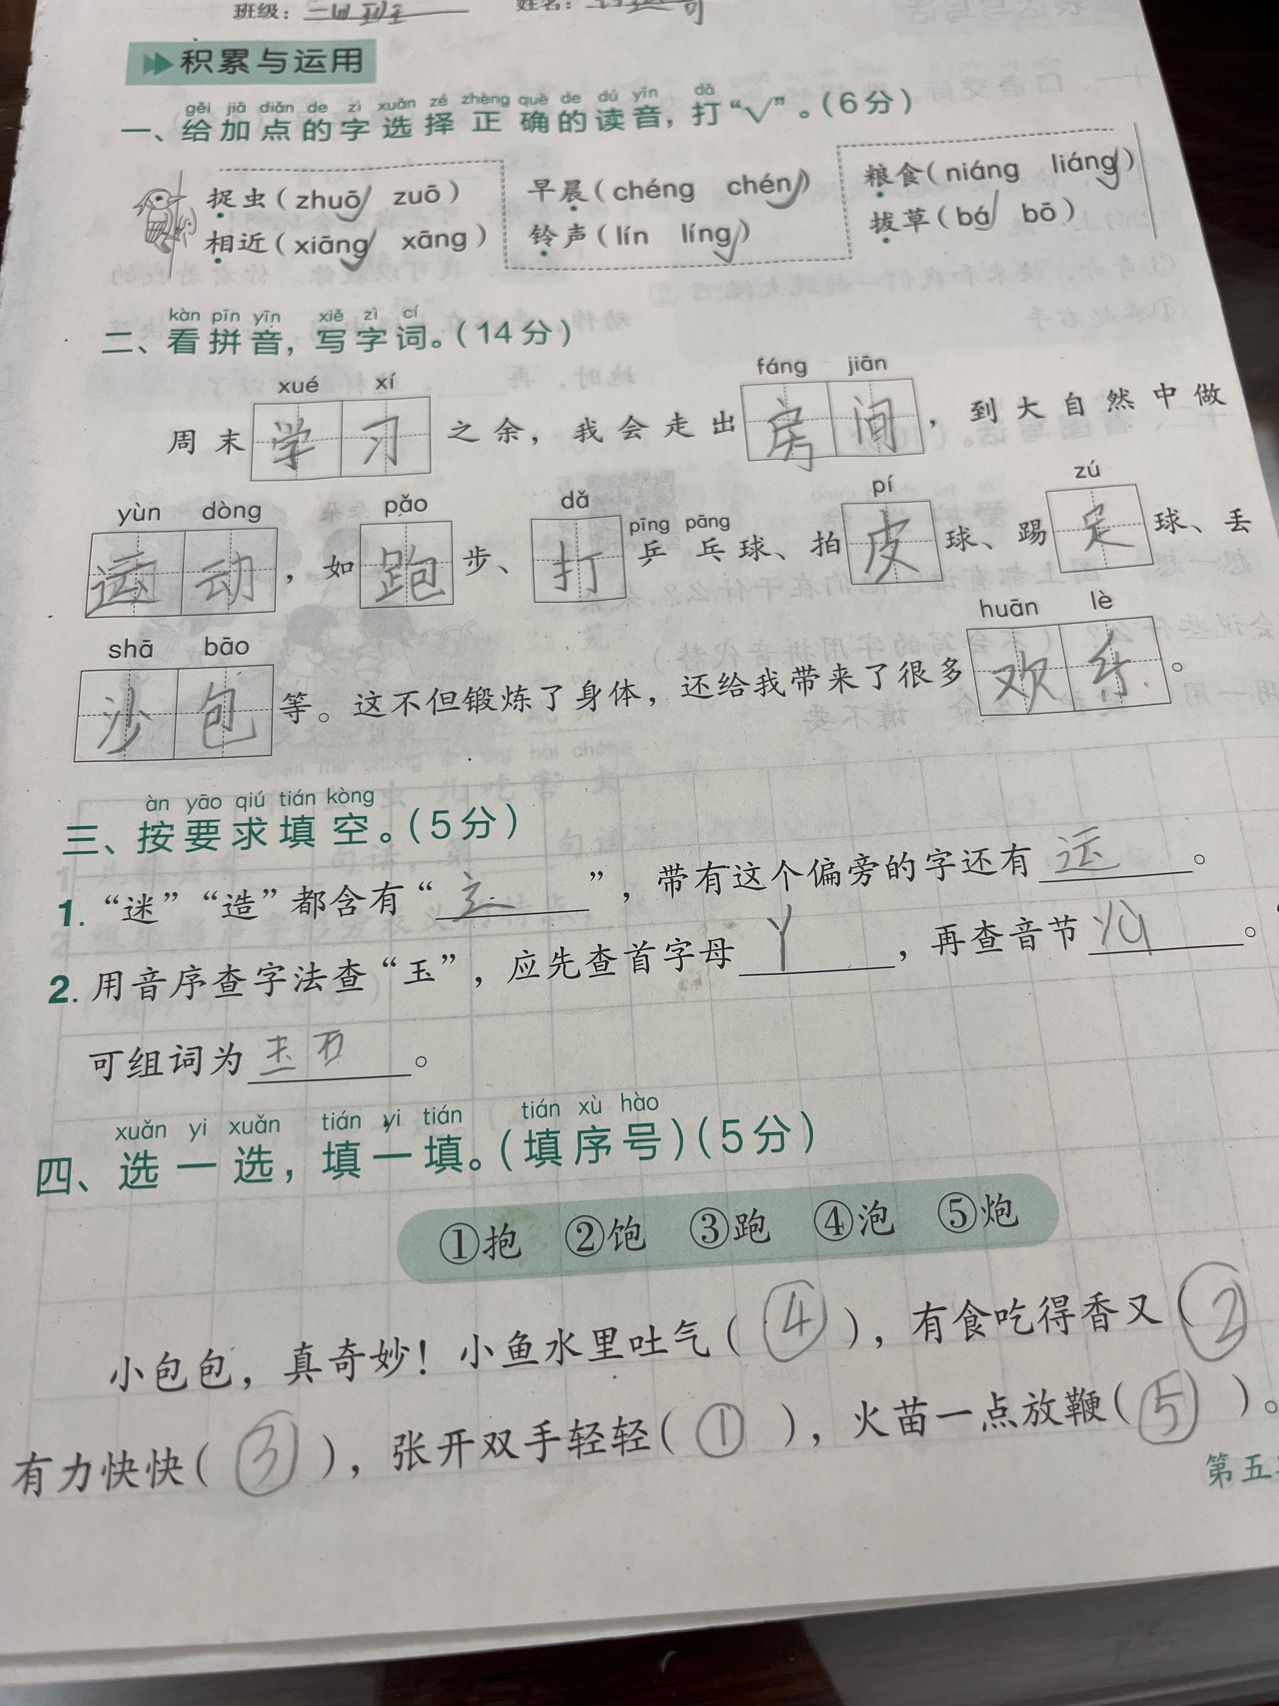 班级：
姓名：
积累与运用
gěi jiā diǎn de zì xuǎn zé zhèng què de dú yīn dǎ
一、给加点的字选择正确的读音，打“√”。（6分）
捉虫（zhuō√ zuō） 早晨（chéng chén√） 粮食（niáng liáng√）
相近（xiāng√ xāng） 铃声（lín líng√） 拔草（bá√ bō）
kàn pīn yīn xiě zì cí
二、看拼音，写字词。（14分）
xué xí fáng jiān
周末学习之余，我会走出房间，到大自然中做
yùn dòng pǎo dǎ pīng pāng pí zú
运动，如跑步、打乒乓球、拍皮球、踢足球、丢
shā bāo huān lè
沙包等。这不但锻炼了身体，还给我带来了很多欢乐。
àn yāo qiú tián kòng
三、按要求填空。（5分）
1. “迷”“造”都含有“辶”，带有这个偏旁的字还有运。
2. 用音序查字法查“玉”，应先查首字母Y，再查音节yu。
可组词为玉石。
xuǎn yi xuǎn tián yi tián tián xù hào
四、选一选，填一填。（填序号）（5分）
①抱 ②饱 ③跑 ④泡 ⑤炮
小包包，真奇妙！小鱼水里吐气（④），有食吃得香又（②
有力快快（③），张开双手轻轻（①），火苗一点放鞭（⑤）。
第五